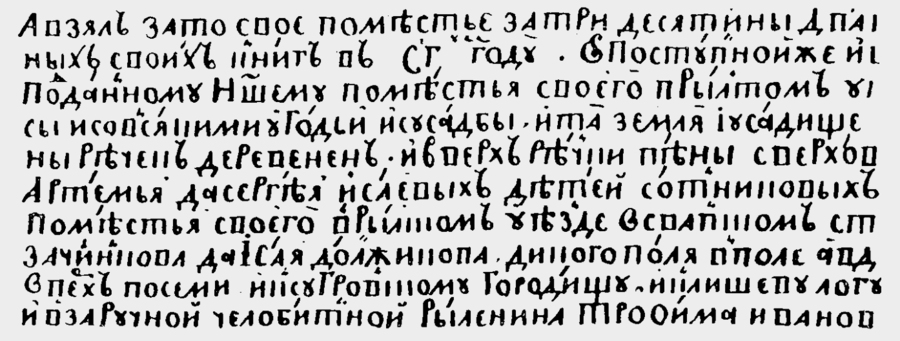 А взялъ зато свое помѣстье затри десятины д
ныхъ своихъ книгъ въ СГ году . Впоступнойже
поданному Ншему помѣстья своего врылскомъ
сы исовсякими угодьи исусадбы . ита земля іусадище
ны рѣчекъ деревенекъ . ивверхъ рѣчки пѣны сверхов
Артемья дасергѣя исаевыхъ дѣтей сотниковыхъ
помѣстья своего врылскомъ уѣзде Всвапскомъ ст
зачинкова даісая должикова . дикого поля вполе авд
Впехъ посеми ііксугровкому городищу . ііклишевулогу
и взаручной челобитной Рыленина Трофима иванов